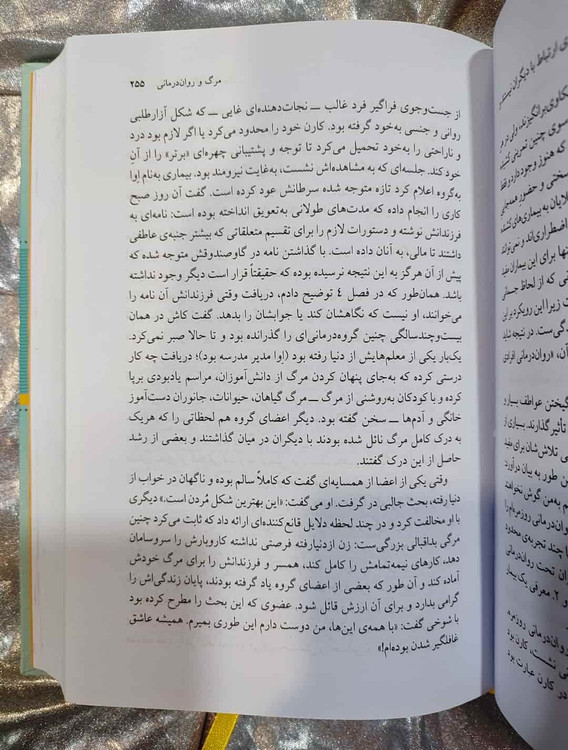 مرگ و روان‌درمانی ۲۵۵
از جست‌وجوی فراگیر فرد غالب — نجات‌دهنده‌ای غایی — که شکل آزارطلبی
روانی و جنسی به‌خود گرفته بود. کارن خود را محدود می‌کرد یا اگر لازم بود درد
و ناراحتی را به‌خود تحمیل می‌کرد تا توجه و پشتیبانی چهره‌ای «برتر» را از آنِ
خود کند. جلسه‌ای که به مشاهده‌اش نشست، به‌غایت نیرومند بود. بیماری به‌نام اِوا
به‌گروه اعلام کرد تازه متوجه شده سرطانش عود کرده است. گفت آن روز صبح
کاری را انجام داده که مدت‌های طولانی به‌تعویق انداخته بوده است: نامه‌ای به
فرزندانش نوشته و دستورات لازم را برای تقسیم متعلقاتی که بیشتر جنبه‌ی عاطفی
داشتند تا مالی، به آنان داده است. با گذاشتن نامه در گاوصندوقش متوجه شده که
پیش از آن هرگز به این نتیجه نرسیده بوده که حقیقتاً قرار است دیگر وجود نداشته
باشد. همان‌طور که در فصل ۴ توضیح دادم، دریافت وقتی فرزندانش آن نامه را
می‌خوانند، او نیست که نگاهشان کند یا جوابشان را بدهد. گفت کاش در همان
بیست‌وچندسالگی چنین گروه‌درمانی‌ای را گذرانده بود و تا حالا صبر نمی‌کرد.
یک‌بار یکی از معلم‌هایش از دنیا رفته بود (اِوا مدیر مدرسه بود)؛ دریافت چه کار
درستی کرده که به‌جای پنهان کردن مرگ از دانش‌آموزان، مراسم یادبودی برپا
کرده و با کودکان به‌روشنی از مرگ — مرگ گیاهان، حیوانات، جانوران دست‌آموز
خانگی و آدم‌ها — سخن گفته بود. دیگر اعضای گروه هم لحظاتی را که هریک
به درک کامل مرگ نائل شده بودند با دیگران در میان گذاشتند و بعضی از رشد
حاصل از این درک گفتند.
وقتی یکی از اعضا از همسایه‌ای گفت که کاملاً سالم بوده و ناگهان در خواب از
دنیا رفته، بحث جالبی در گرفت. او می‌گفت: «این بهترین شکل مُردن است.» دیگری
با او مخالفت کرد و در چند لحظه دلایل قانع‌کننده‌ای ارائه داد که ثابت می‌کرد چنین
مرگی بداقبالی بزرگی‌ست: زن ازدنیارفته فرصتی نداشته کاروبارش را سروسامان
دهد، کارهای نیمه‌تمامش را کامل کند، همسر و فرزندانش را برای مرگ خودش
آماده کند و آن طور که بعضی از اعضای گروه یاد گرفته بودند، پایان زندگی‌اش را
گرامی بدارد و برای آن ارزش قائل شود. عضوی که این بحث را مطرح کرده بود
با شوخی گفت: «با همه‌ی این‌ها، من دوست دارم این طوری بمیرم. همیشه عاشق
غافلگیر شدن بوده‌ام!»